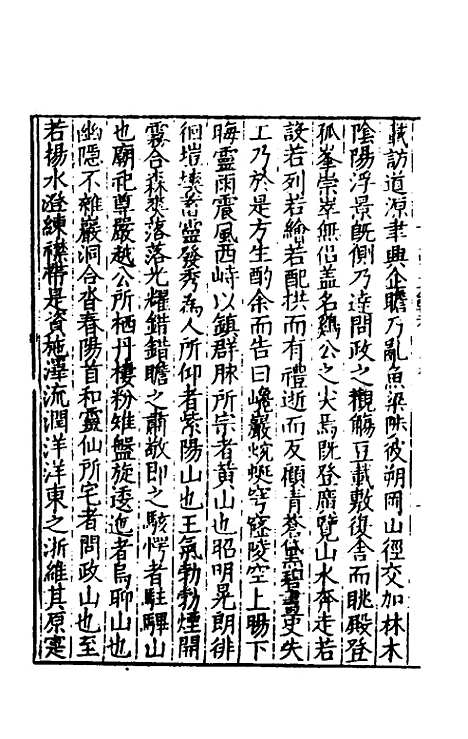 訪道源聿興企瞻乃亂魚梁陟彼朔岡山徑交加林木
陰陽浮景旣側乃達問政之觀觴豆載敷復舎而眺殿登
孤峯崇崒無侣盖名鷄公之尖焉旣登席覽山水奔走若
設若列若繪若配拱而有禮逝而反顧青蒼黛碧畫史失
工乃於是方生酌余而告曰巉巖蜿蜒穹窿陵空上暘下
晦靈雨震風西峙以鎮群脉所宗者黄山也昭明晃朗徘
徊塏塽蓄靈發秀爲人所仰者紫陽山也王氣勃勃煙開
霧合森爽落落光耀錯錯瞻之肅敬即之駭愕者駐驆山
也廟祀尊嚴越公所栖丹樓粉雉盤旋逶迤者烏聊山也
幽隱不雜巖洞合沓春陽首和靈仙所宅者問政山也至
若揚水澄練襟帶是資施澤流潤洋洋東之浙維其原寔